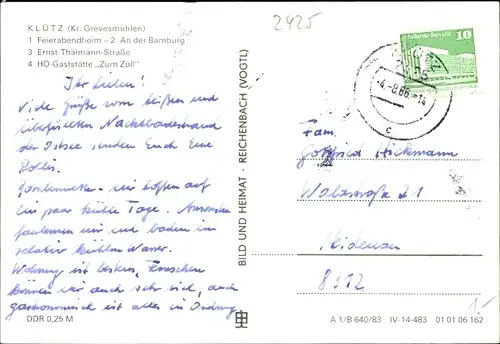 2425
KLÜTZ (Kr. Grevesmühlen)
1 Feierabendheim – 2 An der Bamburg
3 Ernst-Thälmann-Straße
4 HO-Gaststätte „Zum Zoll"
10
-4.-8.86-14
c
Ihr Lieben!
Viele Grüße vom heißen und
überfüllten
der Ostsee senden Euch Eure
wir hoffen auf
ein paar kühle Tage. Ansonsten
faulenzen wir und baden im
relativ kühlen Wasser.
Wohnung ist bestens,
können wir auch sehr viel, auch
gastronomisch ist alles in Ordnung
BILD UND HEIMAT - REICHENBACH (VOGTL)
Fam.
Gottfried Hickmann
21
DDR 0,25 M
A 1/B 640/83 IV-14-483 01 01 06 162
1.-